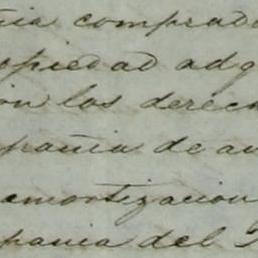 ñia comprado
opiedad adq
on los derech
pañia de au
amortizacion
pania del